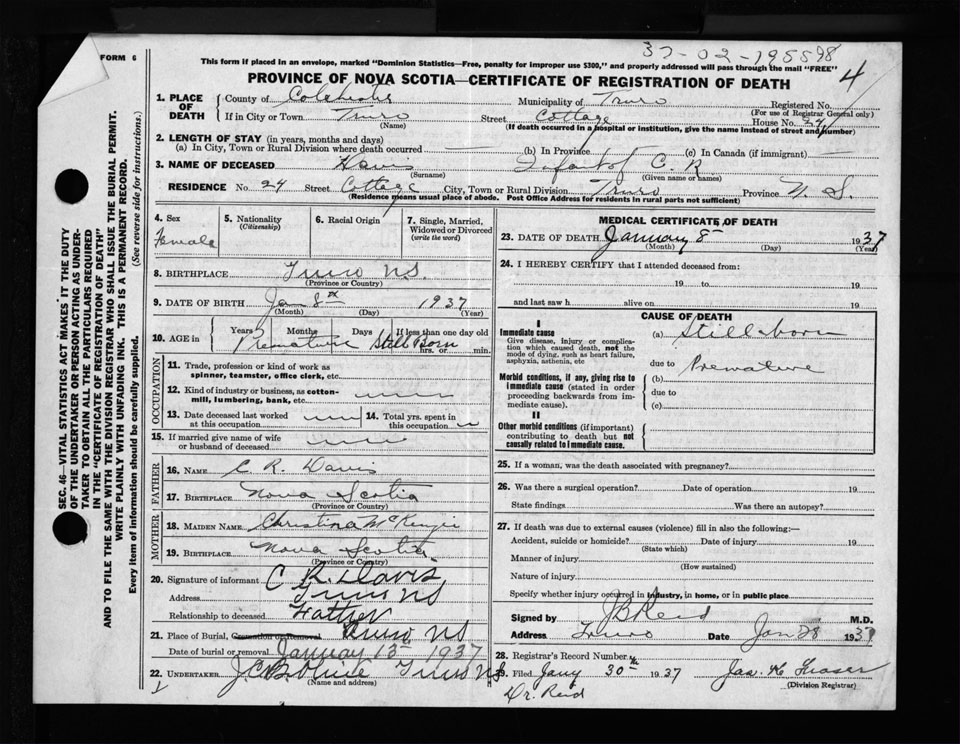 37-02-195598
FORM 6
This form if placed in an envelope, marked "Dominion Statistics—Free, penalty for improper use $300," and properly addressed will pass through the mail "FREE"
PROVINCE OF NOVA SCOTIA—CERTIFICATE OF REGISTRATION OF DEATH
4
1. PLACE OF DEATH { County of Colchester Municipality of Truro Registered No.
(For use of Registrar General only)
If in City or Town Truro Street Cottage House No. 24
(Name) (If death occurred in a hospital or institution, give the name instead of street and number)
2. LENGTH OF STAY (in years, months and days)
(a) In City, Town or Rural Division where death occurred (b) In Province (c) In Canada (if immigrant)
3. NAME OF DECEASED Davis Infant of C. R.
(Surname) (Given name or names)
RESIDENCE No. 24 Street Cottage City, Town or Rural Division Truro Province N. S.
(Residence means usual place of abode. Post Office Address for residents in rural parts not sufficient)
4. Sex
Female
5. Nationality
(Citizenship)
6. Racial Origin
7. Single, Married, Widowed or Divorced
(write the word)
8. BIRTHPLACE Truro N.S.
(Province or Country)
9. DATE OF BIRTH Jan 8th 1937
(Month) (Day) (Year)
10. AGE in Years Months Days If less than one day old
Premature Still Born hrs. or min.
OCCUPATION
11. Trade, profession or kind of work as spinner, teamster, office clerk, etc.
12. Kind of industry or business, as cotton-mill, lumbering, bank, etc.
13. Date deceased last worked at this occupation
14. Total yrs. spent in this occupation
15. If married give name of wife or husband of deceased
FATHER
16. NAME C. R. Davis
17. BIRTHPLACE Nova Scotia
(Province or Country)
MOTHER
18. MAIDEN NAME Christina McKenzie
19. BIRTHPLACE Nova Scotia
(Province or Country)
20. Signature of informant C R Davis
Address Truro NS
Relationship to deceased Father
21. Place of Burial, Cremation or Removal Truro NS
Date of burial or removal January 13th 1937
22. UNDERTAKER Truro NS
(Name and address)
MEDICAL CERTIFICATE OF DEATH
23. DATE OF DEATH January 8 1937
(Month) (Day) (Year)
24. I HEREBY CERTIFY that I attended deceased from:
19 to 19
and last saw h alive on 19
CAUSE OF DEATH
I
Immediate cause
Give disease, injury or complication which caused death, not the mode of dying, such as heart failure, asphyxia, asthenia, etc
(a) Stillborn
due to Premature
Morbid conditions, if any, giving rise to immediate cause (stated in order proceeding backwards from immediate cause).
(b)
due to
(c)
II
Other morbid conditions (if important) contributing to death but not causally related to immediate cause.
25. If a woman, was the death associated with pregnancy?
26. Was there a surgical operation? Date of operation 19
State findings Was there an autopsy?
27. If death was due to external causes (violence) fill in also the following:—
Accident, suicide or homicide? Date of injury 19
(State which)
Manner of injury
(How sustained)
Nature of injury
Specify whether injury occurred in industry, in home, or in public place
Signed by J B Reid M.D.
Address Truro Date Jan 28 1937
28. Registrar's Record Number
29. Filed Jany 30th 1937 Jas. H. Fraser
(Division Registrar)
Dr. Reid
SEC. 46—VITAL STATISTICS ACT MAKES IT THE DUTY
OF THE UNDERTAKER OR PERSON ACTING AS UNDER-
TAKER TO OBTAIN ALL THE PARTICULARS REQUIRED
IN THE "CERTIFICATE OF REGISTRATION OF DEATH"
AND TO FILE THE SAME WITH THE DIVISION REGISTRAR WHO SHALL ISSUE THE BURIAL PERMIT.
WRITE PLAINLY WITH UNFADING INK. THIS IS A PERMANENT RECORD.
Every item of information should be carefully supplied. (See reverse side for instructions.)